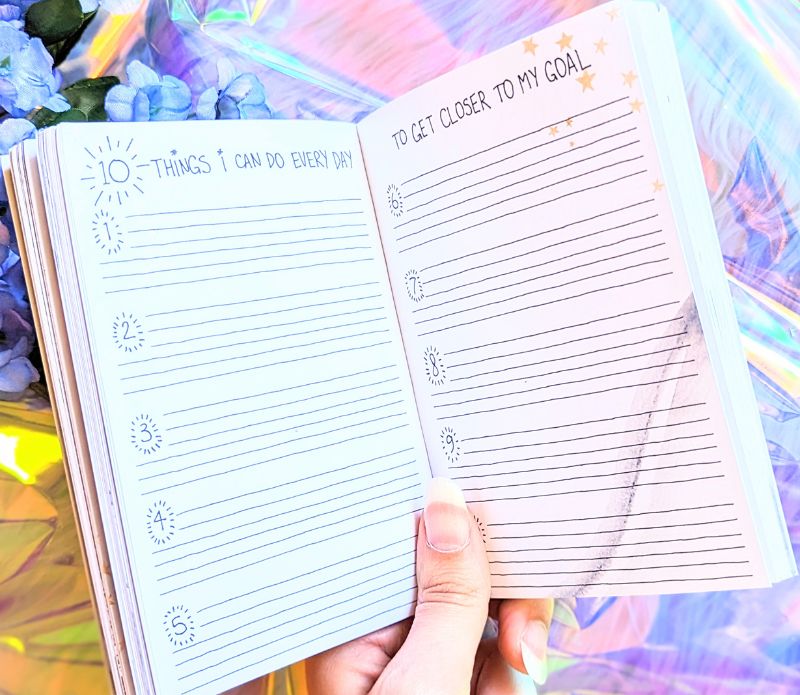 10 THINGS i CAN DO EVERY DAY
1
2
3
4
5
TO GET CLOSER TO MY GOAL
6
7
8
9